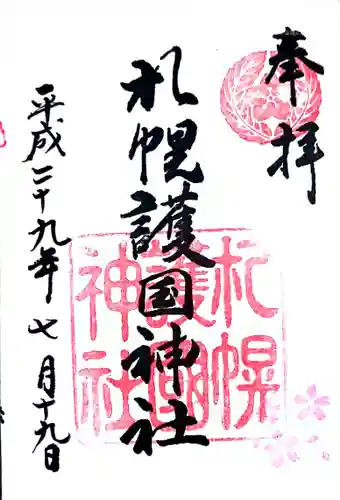 奉拝
札幌護国神社
平成二十九年七月十九日
札幌護国神社